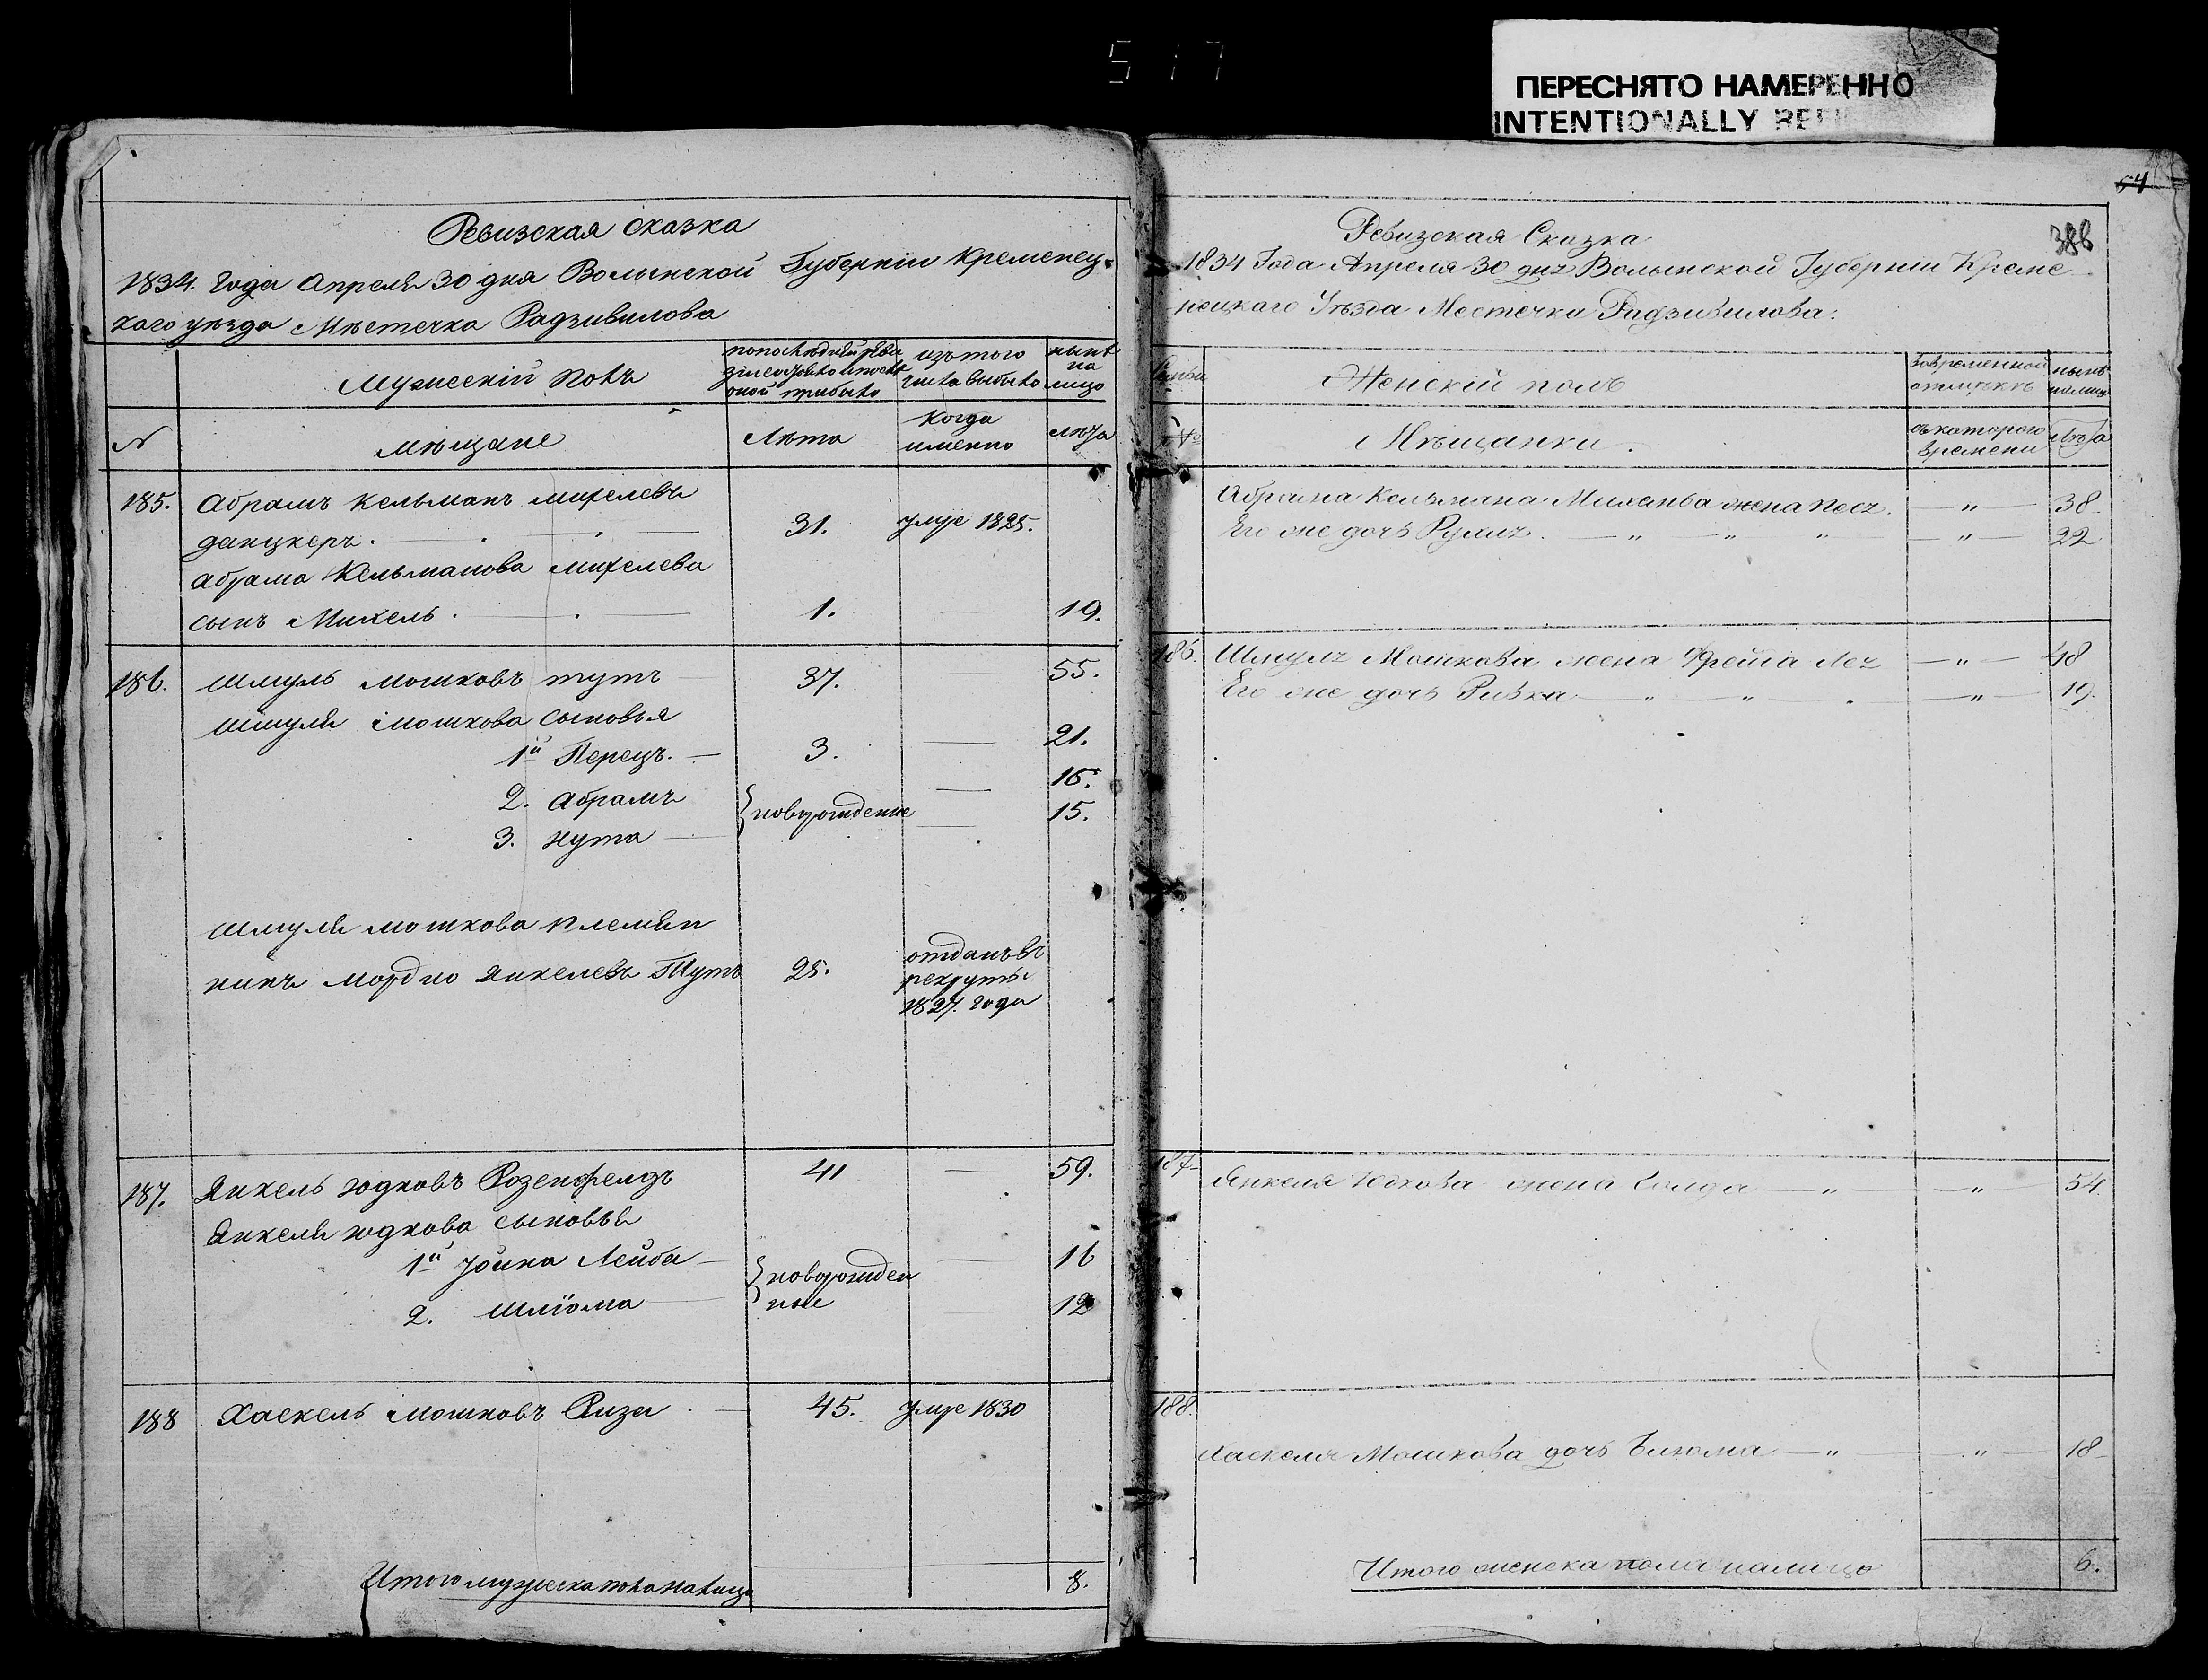 517
ПЕРЕСНЯТО НАМЕРЕННО
INTENTIONALLY
54
386
Ревизская сказка
1834. Года Апреля 30 дня Волынской Губернiи Кременец-
каго уѣзда Мѣстечка Радзивилова
Мужескiй Полъ
по последней реви
зiи состояло и после
оной прибыло
изъ того
числа выбыло
нынѣ
на
лицо
№
мѣщане
Лѣта
Когда
именно
лѣта
185. Абрамъ Кельманъ михелевъ
данцкеръ. 31. умре 1825.
Абрама Кельманова михелева
сынъ Михель. 1. 19.
186. Шмуль мошковъ тутъ 37. 55.
Шмуля мошкова сыновья
1й Перецъ. 3. 21.
2. Абрамъ 16.
3. Нута 15.
новорожденные
Шмуля мошкова племян
никъ мордко янкелевъ Тутъ 25.
отданъ въ
рекруты
1827. года
187. Янкель юдковъ Розенфелдъ 41 59.
Янкеля юдкова сыновья
1й Лейба 16
2. Шлiома 12
новорожден
ные
188 Хаскель мошковъ 45. умре 1830
Итого мужеска пола налицо 8.
Ревизская Сказка
1834 Года Апреля 30 дня Волынской Губернiи Креме
нецкаго Уѣзда Местечка Радзивилова:
Семьи
Женскiй полъ
во временной
отлучкѣ
нынѣ
налицо
№
Мѣщанки.
съ котораго
времени
Лѣта
Абрама Кельмана Михелева жена Песя. — " — 38
Его же дочь Рухля. — " — " " — " — 22
186. Шмуля Мошкова жена Фрейда Лея — " — 48
Его же дочь Ривка — " — " — " — 19.
187 Янкеля Юдкова жена — " — " — 54.
188.
Хаскеля Мошкова дочь — " " — 18
Итого женска пола налицо 6.